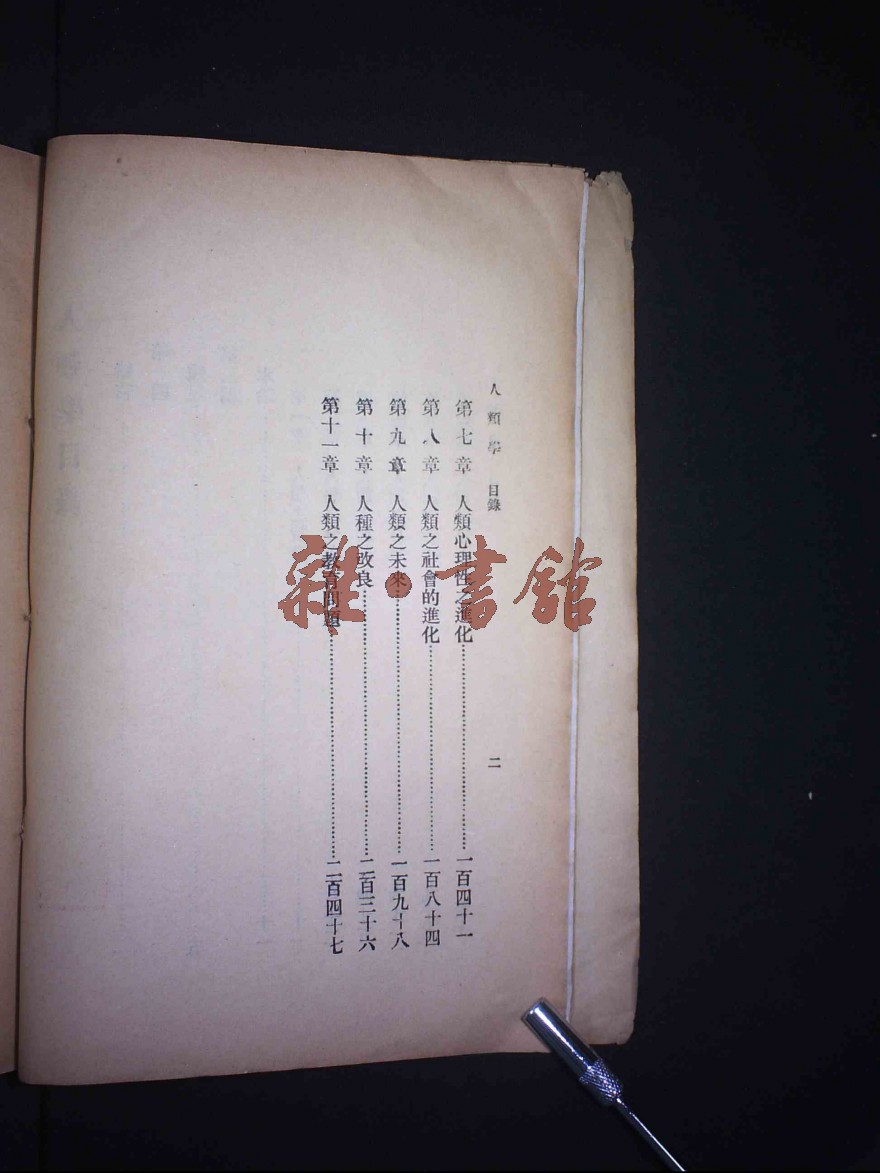 人類學 目錄 二
第七章 人類心理性之進化……一百四十一
第八章 人類之社會的進化……一百八十四
第九章 人類之未來……一百九十八
第十章 人種之改良……二百三十六
第十一章 人類之教育問題……二百四十七
雜·書館